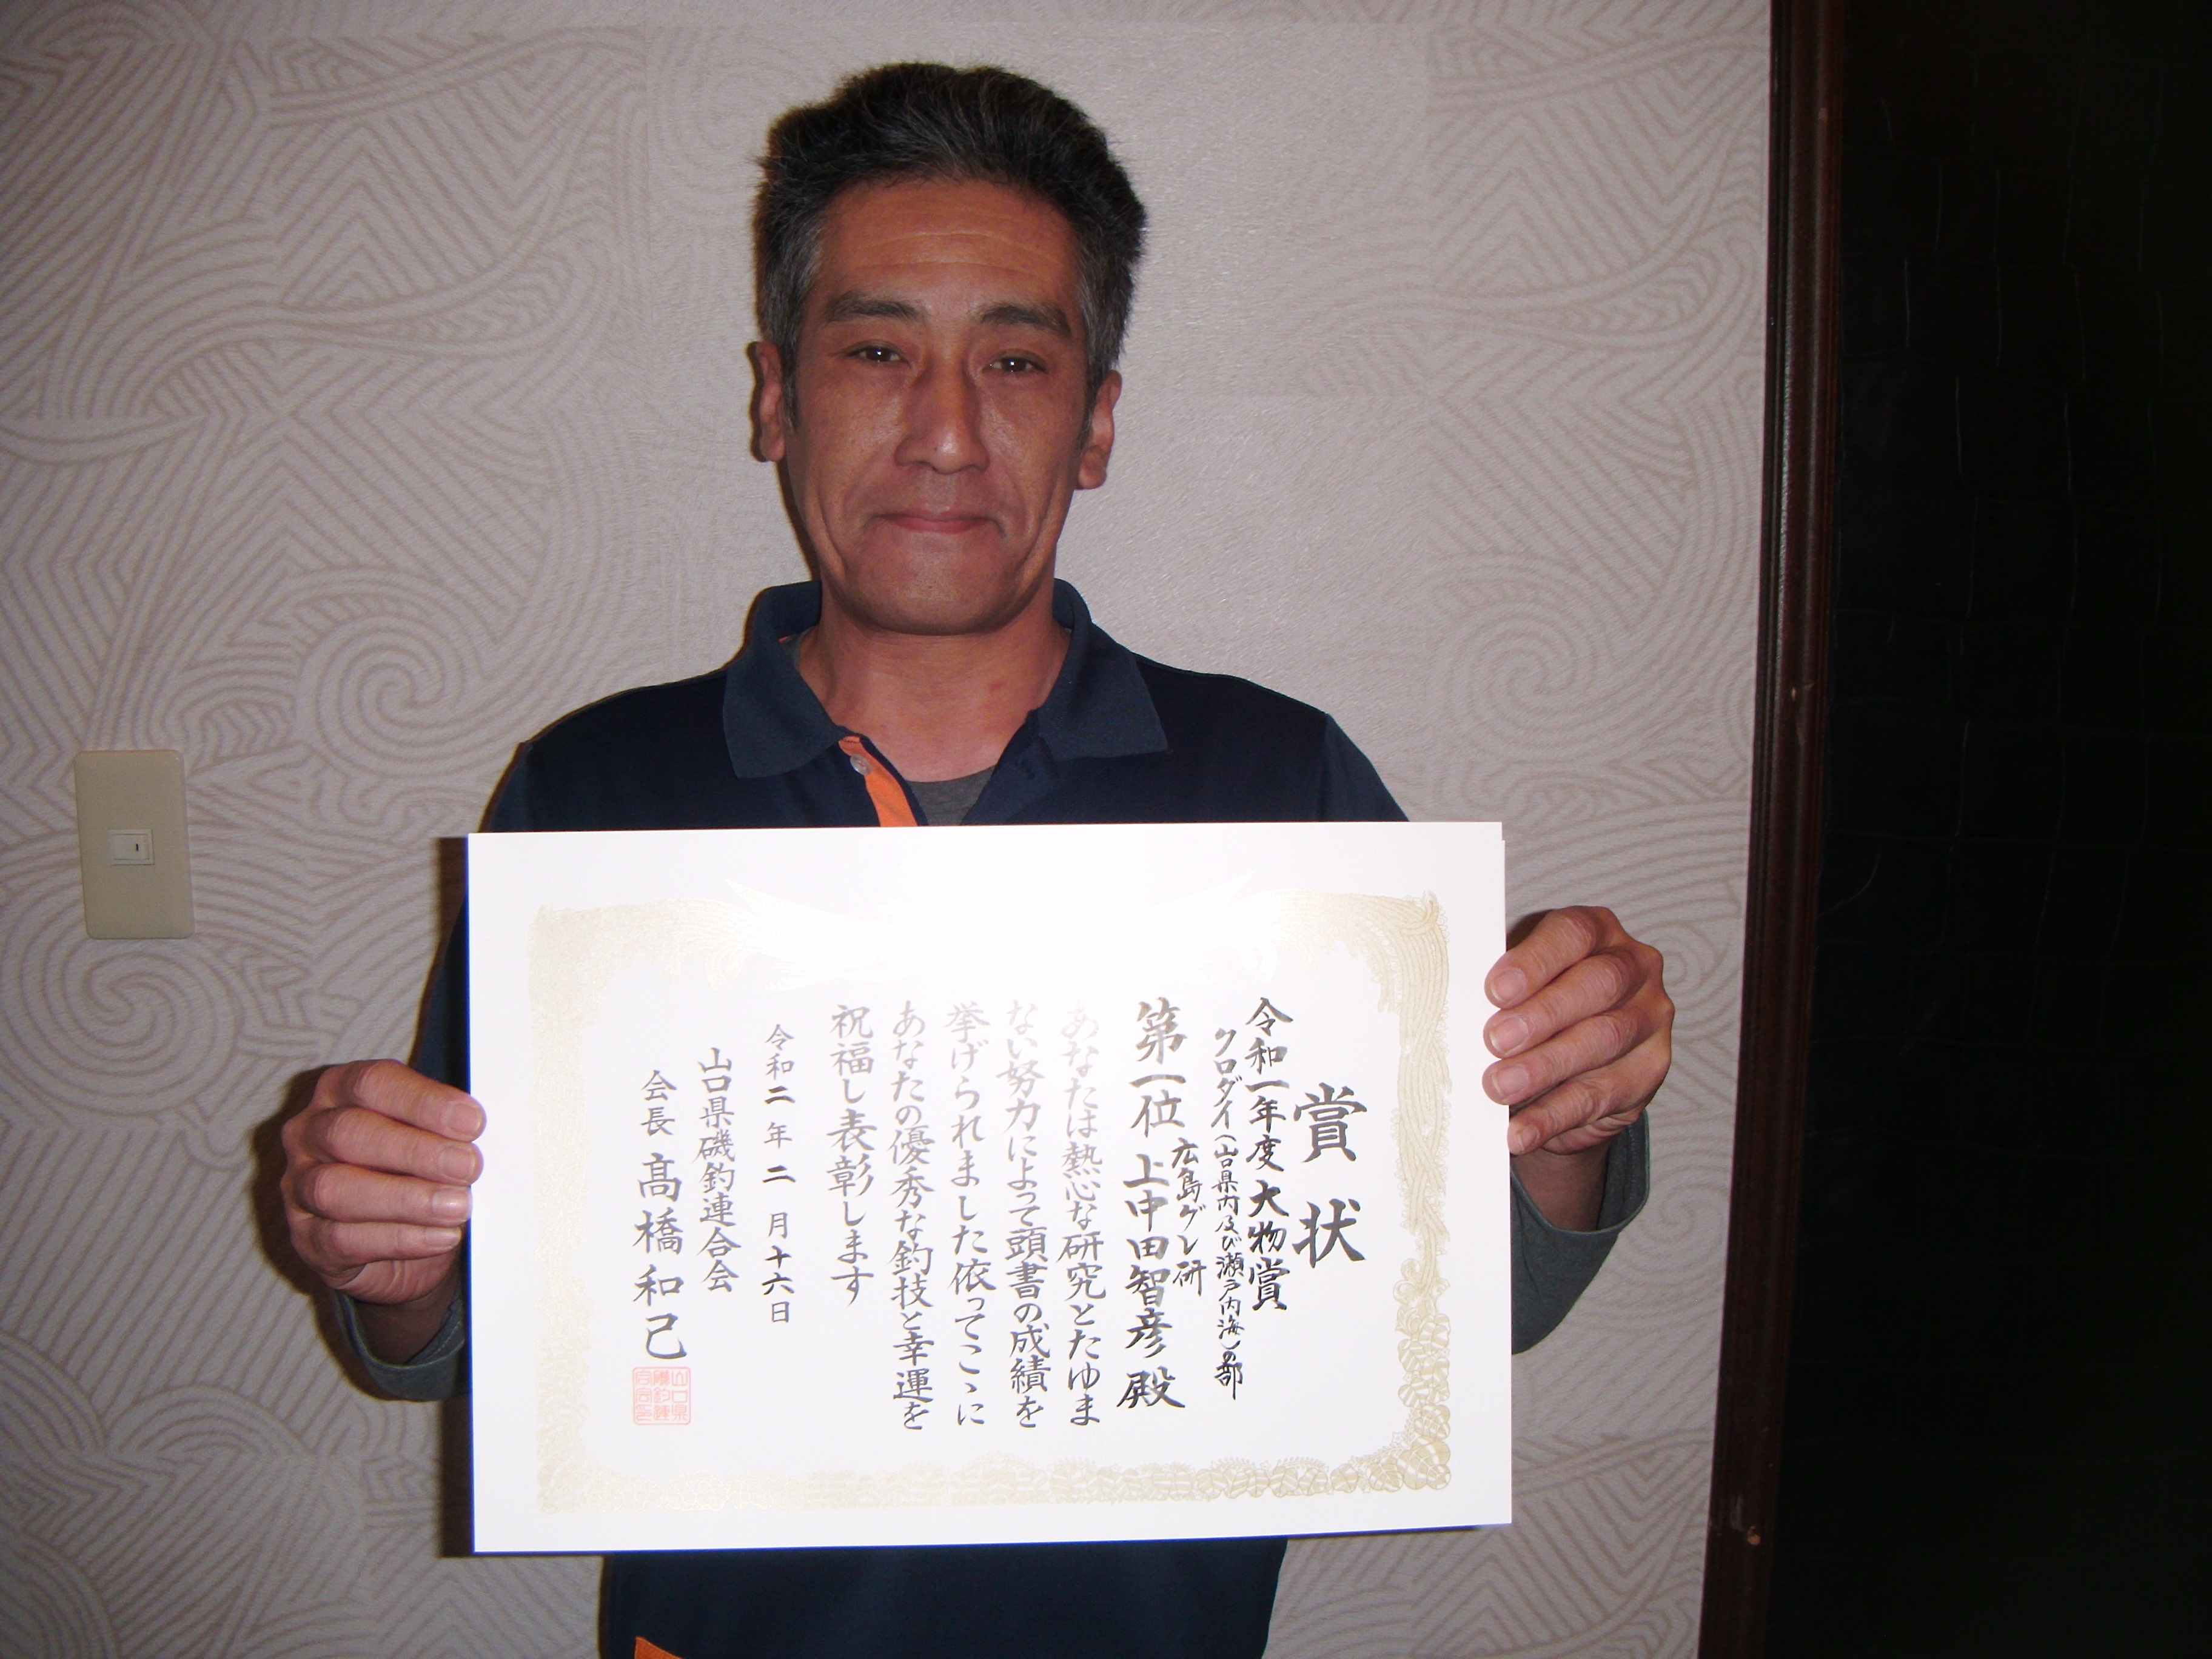 賞状
令和一年度大物賞
クロダイ(山口県内及び瀬戸内海)の部
広島グレ研
第一位 上中田智彦 殿
あなたは熱心な研究とたゆま
ない努力によって頭書の成績を
挙げられました依ってこゝに
あなたの優秀な釣技と幸運を
祝福し表彰します
令和二年二月十六日
山口県磯釣連合会
会長 髙橋和己